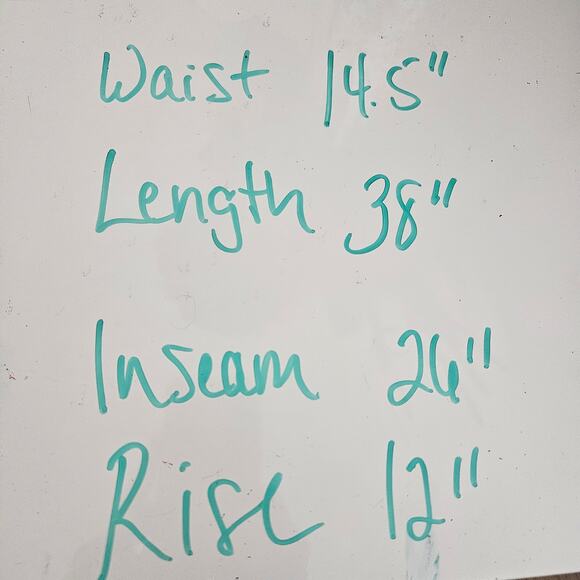 Waist 14.5"
Length 38"
Inseam 26"
Rise 12"